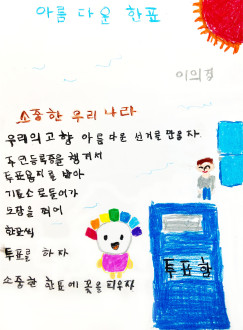 아름 다운 한표
이의경
소중한 우리 나라
우리의 고향 아름다운 선거로 만들자.
주민등록증을 챙겨서
투표용지를 받아
기표소로 들어가
도장을 찍어
한표씩
투표를 하자
소중한 한표에 꽃을 피우자
투표함